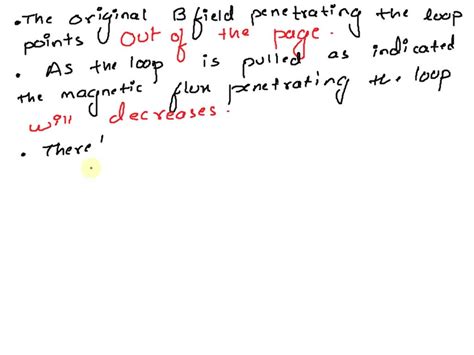 • The original B field penetrating the loop
points Out of the page.
• As the loop is pulled as indicated
the magnetic flux penetrating the loop
will decreases.
• There'